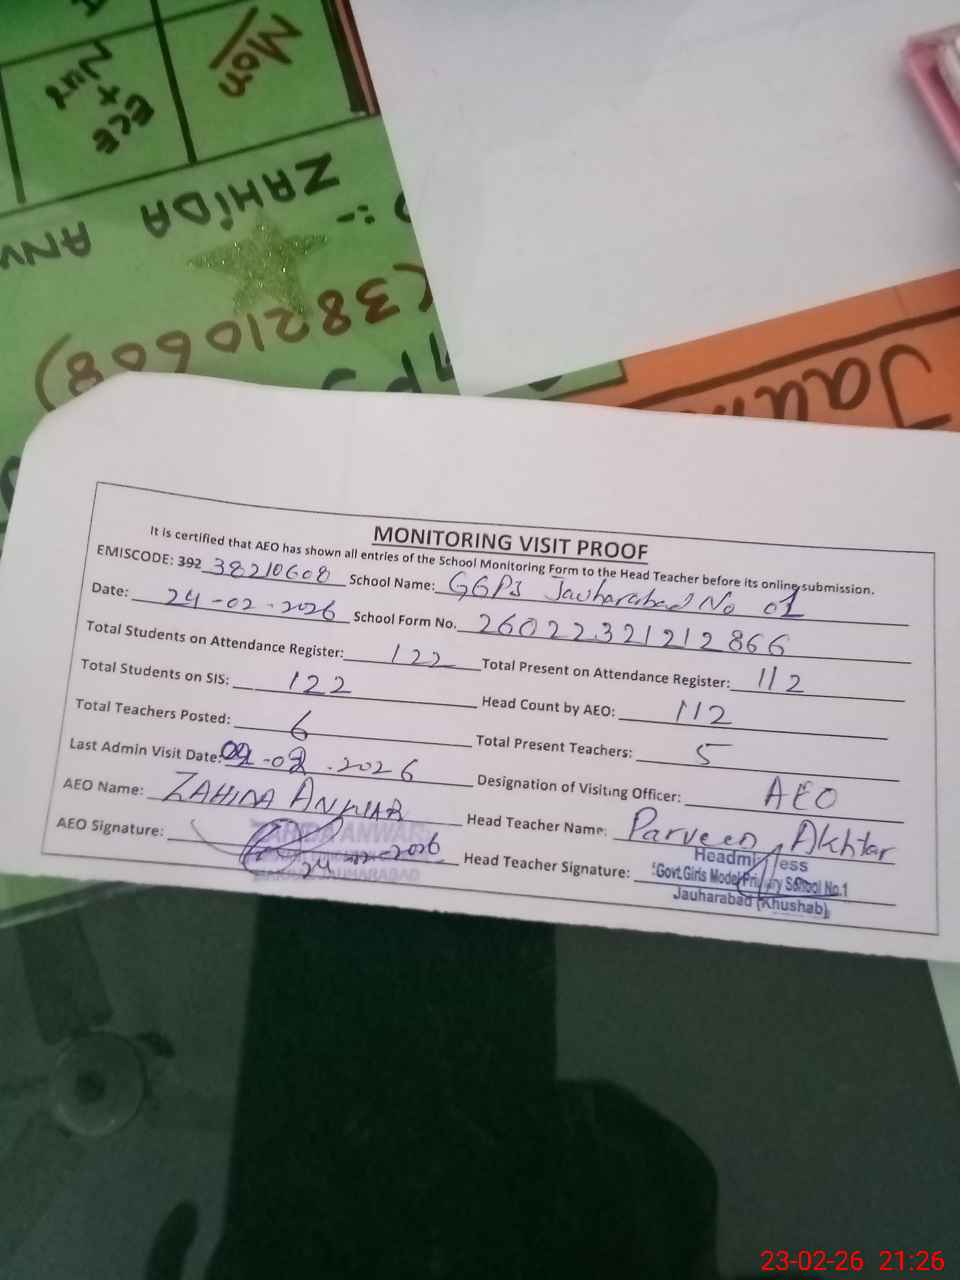 Mon
ECE + Nur
:- ZAHIDA ANW
(38210608)
Jau
MONITORING VISIT PROOF
It is certified that AEO has shown all entries of the School Monitoring Form to the Head Teacher before its online submission.
EMISCODE: 392 38210608 School Name: GGPS Jauharabad No 01
Date: 24-02-2026 School Form No. 26022321212866
Total Students on Attendance Register: 122 Total Present on Attendance Register: 112
Total Students on SIS: 122 Head Count by AEO: 112
Total Teachers Posted: 6 Total Present Teachers: 5
Last Admin Visit Date: -02.2026 Designation of Visiting Officer: AEO
AEO Name: ZAHIDA ANWAR Head Teacher Name: Parveen Akhtar
AEO Signature: ZAHIDA ANWAR 24 2026 JAUHARABAD Head Teacher Signature: Headmistress
Govt.Girls Model Primary School No.1
Jauharabad (Khushab)
23-02-26 21:26